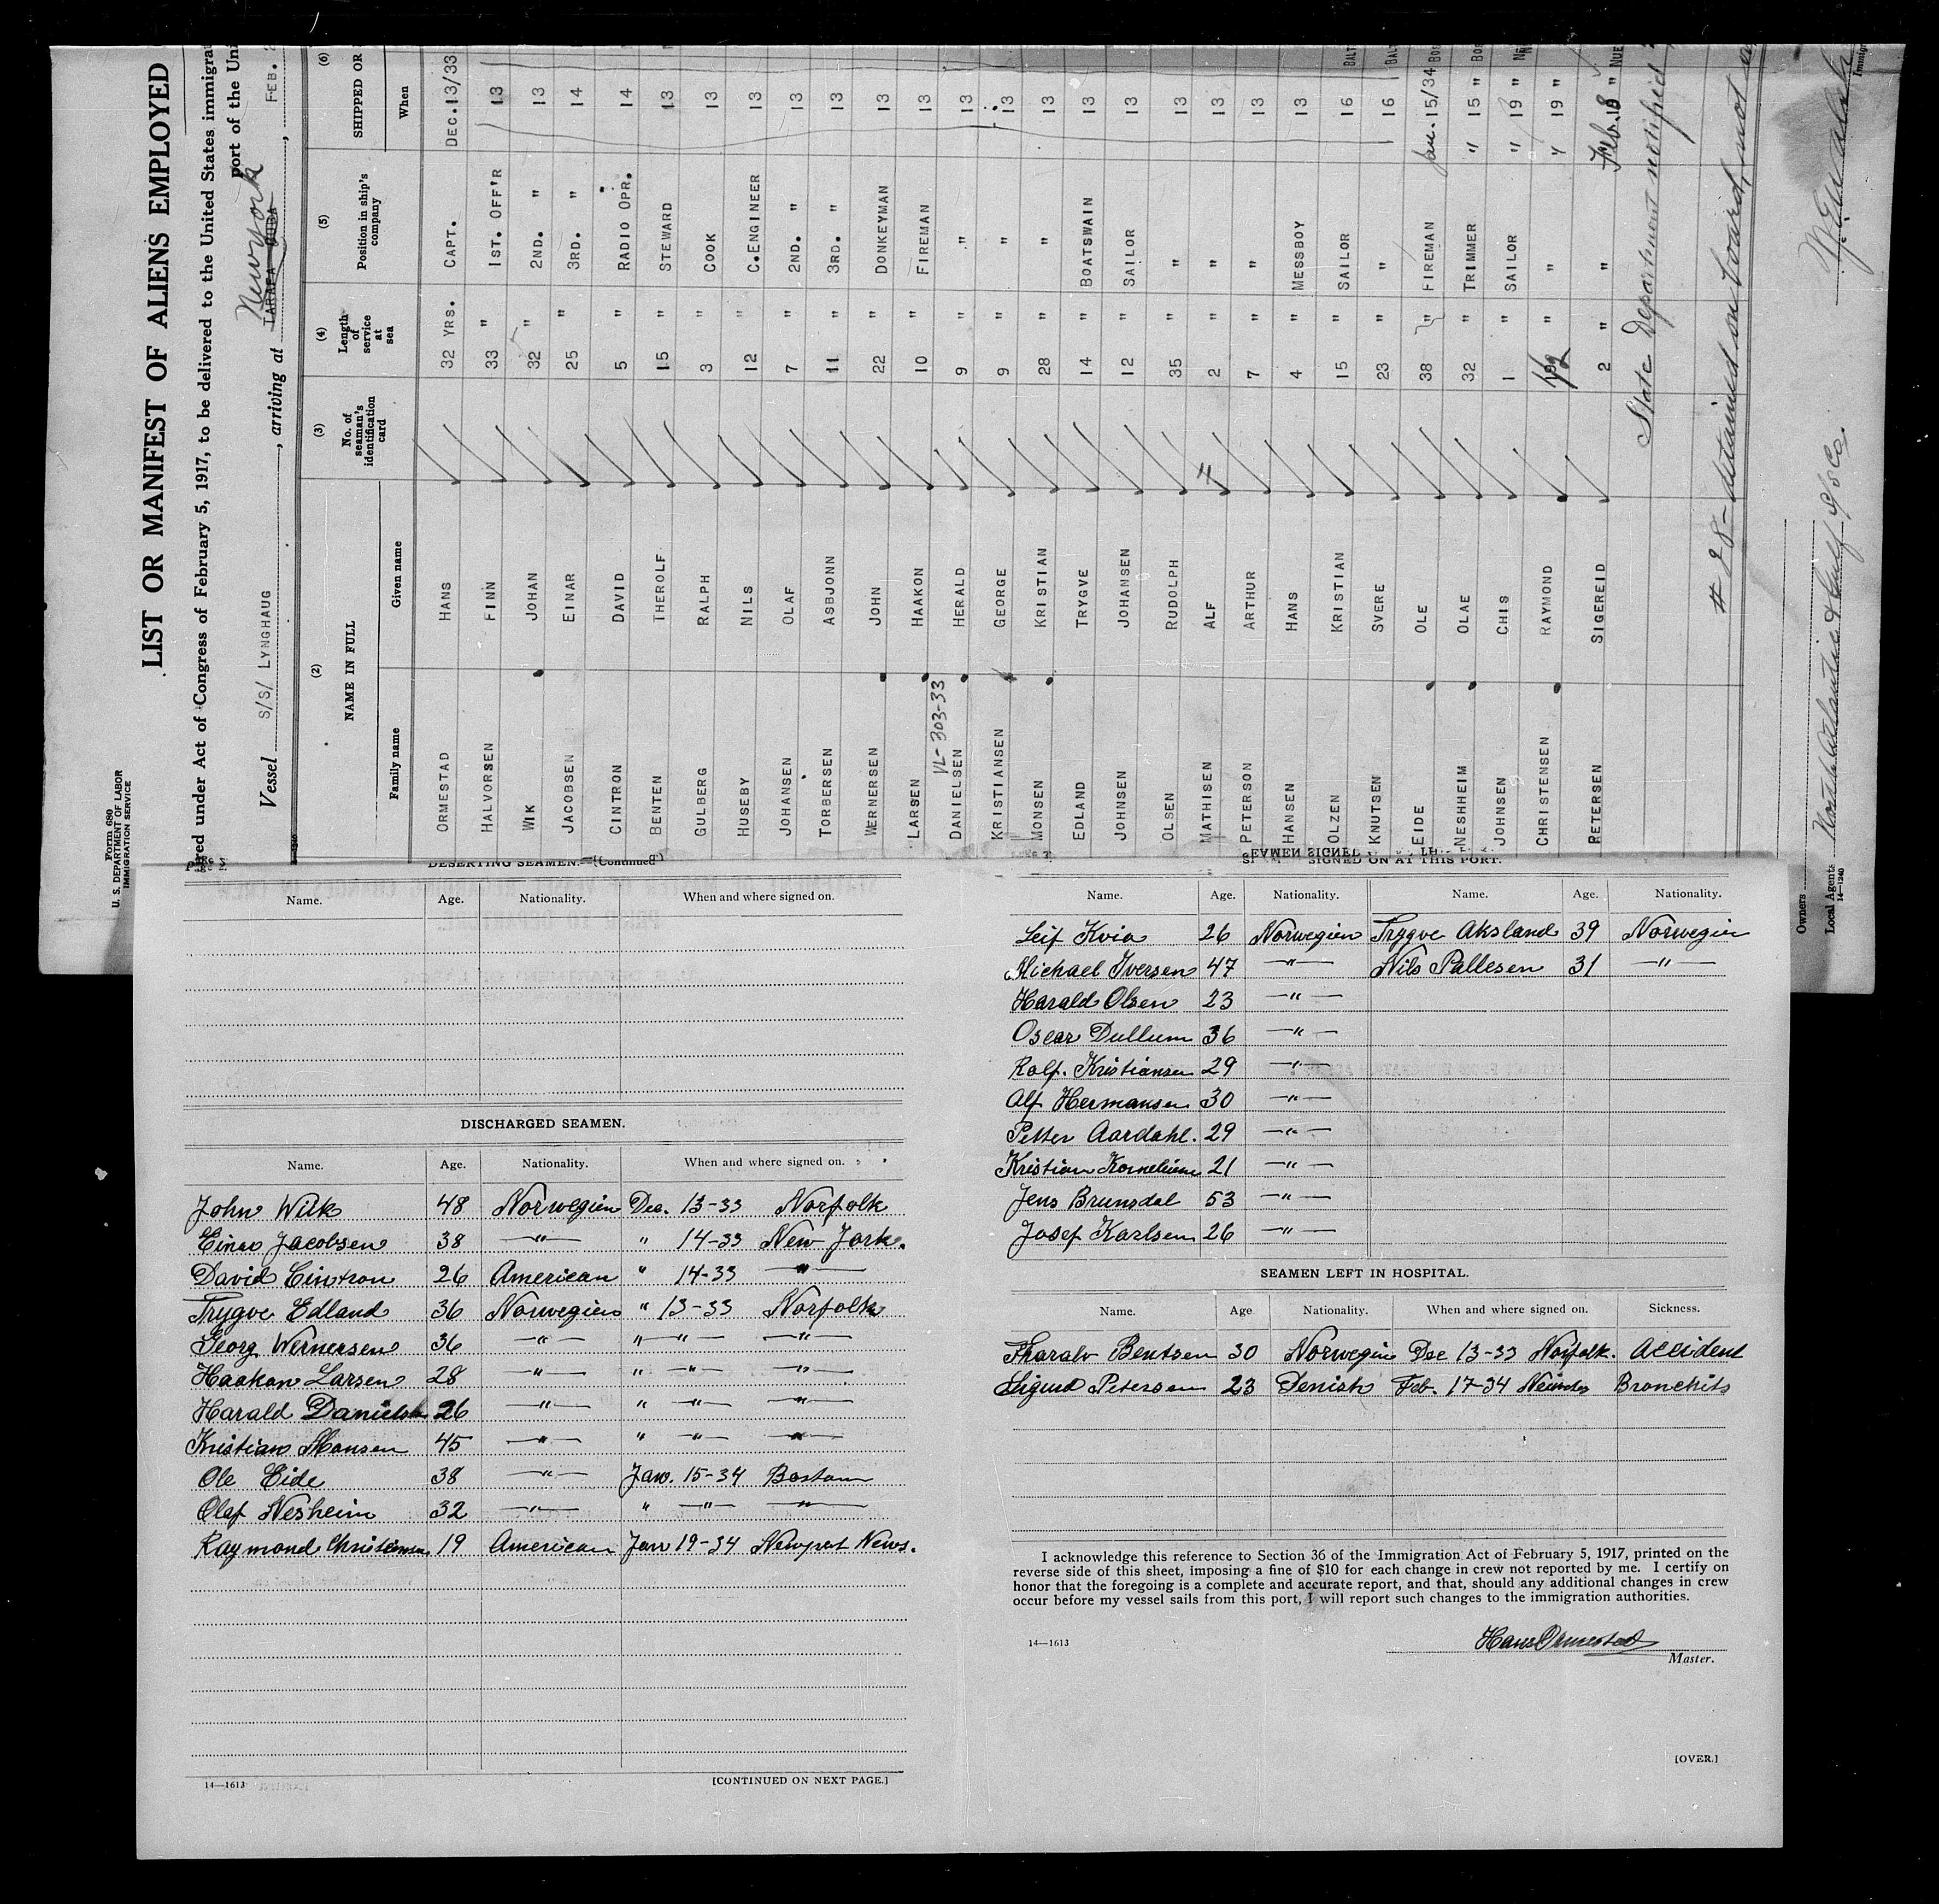 Form 680
U. S. DEPARTMENT OF LABOR
IMMIGRATION SERVICE
LIST OR MANIFEST OF ALIENS EMPLOYED
red under Act of Congress of February 5, 1917, to be delivered to the United States immigra
port of the Uni
Vessel S/S/ LYNGHAUG, arriving at TARAFA CUBA New york, FEB.
(2) (3) (4) (5) (6)
NAME IN FULL No. of seaman's identification card Length of service at sea Position in ship's company SHIPPED OR
Family name Given name When
ORMESTAD HANS 32 YRS. CAPT. DEC.13/33
HALVORSEN FINN 33 " 1ST. OFF'R 13
WIK JOHAN 32 " 2ND. " 13
JACOBSEN EINAR 25 " 3RD. " 14
CINTRON DAVID 5 " RADIO OPR. 14
BENTEN THEROLF 15 " STEWARD 13
GULBERG RALPH 3 " COOK 13
HUSEBY NILS 12 " C.ENGINEER 13
JOHANSEN OLAF 7 " 2ND. " 13
TORBERSEN ASBJONN 11 " 3RD. " 13
WERNERSEN JOHN 22 " DONKEYMAN 13
LARSEN HAAKON 10 " FIREMAN 13
VL-303-33
DANIELSEN HERALD 9 " " 13
KRISTIANSEN GEORGE 9 " " 13
MONSEN KRISTIAN 28 " " 13
EDLAND TRYGVE 14 " BOATSWAIN 13
JOHNSEN JOHANSEN 12 " SAILOR 13
OLSEN RUDOLPH 35 " " 13
MATHISEN ALF 2 " " 13
PETERSON ARTHUR 7 " " 13
HANSEN HANS 4 " MESSBOY 13
OLZEN KRISTIAN 15 " SAILOR 16 BALT
KNUTSEN SVERE 23 " " 16 BALT
EIDE OLE 38 " FIREMAN Jan. 15/34 BOS
NESHHEIM OLAE 32 " TRIMMER " 15 " BOS
JOHNSEN CHIS 1 " SAILOR " 19 " NE
CHRISTENSEN RAYMOND 1/2 " " " 19 "
PETERSEN SIGEREID 2 " " Feb. 18 " NUE
State Department notified
# 28 - detained on board, not
Owners
Local Agents North Atlantic & Gulf S/S Co.
14—1240
DESERTING SEAMEN.—(Continued)
Name. Age. Nationality. When and where signed on.
DISCHARGED SEAMEN.
Name. Age. Nationality. When and where signed on.
John Wiik 48 Norwegien Dec. 13-33 Norfolk
Einar Jacobsen 38 —"— " 14-33 New York.
David Cintron 26 American " 14-33 —"—
Trygve Edland 36 Norwegien " 13-33 Norfolk
Georg Wernersen 36 —"— "—"— —"—
Haakon Larsen 28 —"— " —"— —"—
Harald Danielsen 26 —"— " —"— —"—
Kristian Monsen 45 —"— " —"— —"—
Ole Eide 38 —"— Jan. 15-34 Boston
Olaf Nesheim 32 —"— " —"— —"—
Raymond Christensen 19 American Jan 19-34 Newport News.
14—1613
[CONTINUED ON NEXT PAGE.]
SIGNED ON AT THIS PORT.
Name. Age. Nationality. Name. Age. Nationality.
Leif Kvia 26 Norwegien Trygve Aksland 39 Norwegin
Michael Iversen 47 —"— Nils Pallesen 31 —"—
Harald Olsen 23 —"—
Oscar Dullum 36 —"—
Ralf. Kristiansen 29 —"—
Alf Hermansen 30 —"—
Petter Aardahl. 29 —"—
Kristian Korneliussen 21 —"—
Jens Brunsdal 53 —"—
Josef Karlsen 26 —"—
SEAMEN LEFT IN HOSPITAL.
Name. Age Nationality. When and where signed on. Sickness.
Tharalv Bentsen 30 Norwegin Dec 13-33 Norfolk. Accident
Sigurd Petersen 23 Denish Feb. 17-34 Bronchits
I acknowledge this reference to Section 36 of the Immigration Act of February 5, 1917, printed on the
reverse side of this sheet, imposing a fine of $10 for each change in crew not reported by me. I certify on
honor that the foregoing is a complete and accurate report, and that, should any additional changes in crew
occur before my vessel sails from this port, I will report such changes to the immigration authorities.
14—1613
Hans Ormestad
Master.
[OVER.]